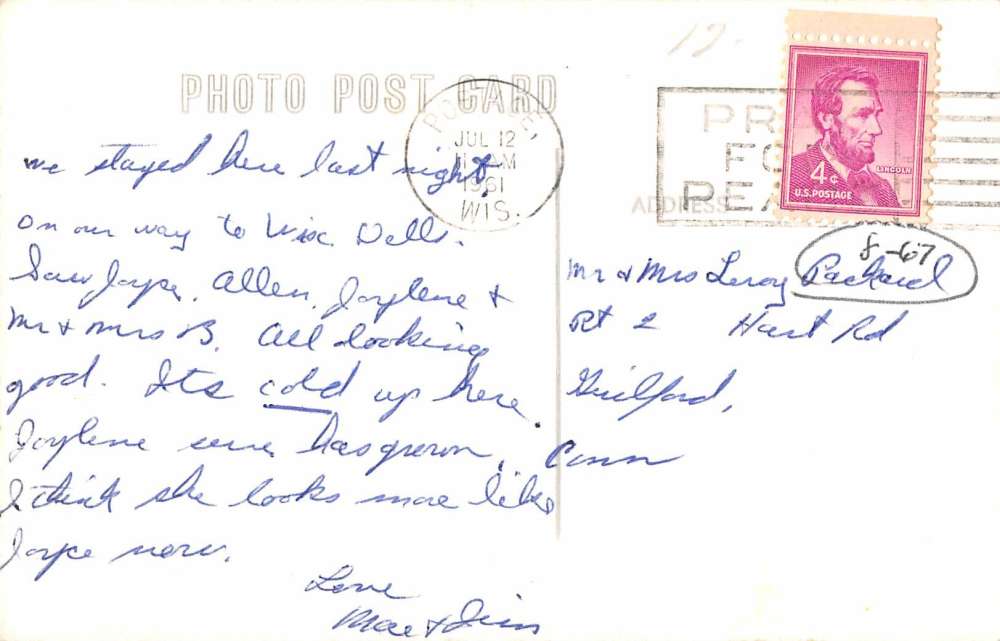 PHOTO POST CARD
JUL 12
AM
1961
WIS.
PR
FO
PEA
ADDRESS
4¢
LINCOLN
U.S. POSTAGE
we stayed here last night,
on our way to Wisc. Dells.
Saw Joyce, Allen, Joylene &
Mr & Mrs B. All looking
good. Its cold up here.
Joylene sure has grown,
I think she looks more like
Joyce now.
Love
Mae & Jim
8-67
Mr & Mrs Leroy Packard
Rt 2 Rd
Guilford,
Conn